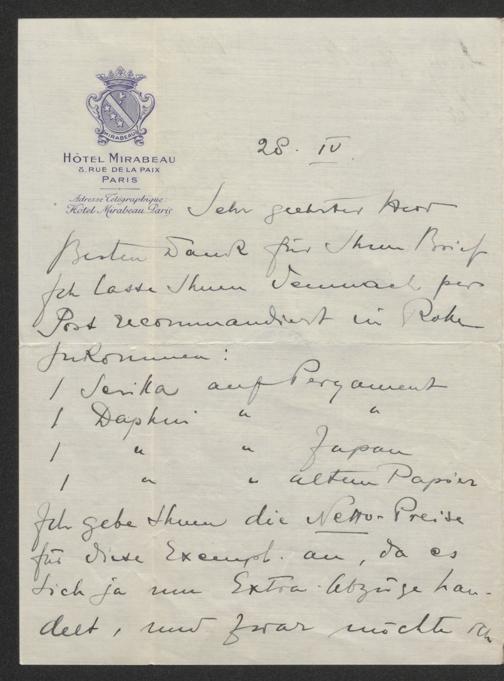 MIRABEAU
HÔTEL MIRABEAU
8, RUE DE LA PAIX
PARIS
Adresse Télégraphique
Hôtel Mirabeau Paris
28. IV
Sehr geehrter Herr
Besten Dank für Ihren Brief
Ich lasse Ihnen demnach per
Post recommandirt in Rollen
zukommen:
1 Serika auf Pergament
1 Daphni " "
1 " " Japan
1 " " altem Papier
Ich gebe Ihnen die Netto-Preise
für diese Exempl. an, da es
sich ja um Extra-Abzüge han-
delt, und zwar möchte ich